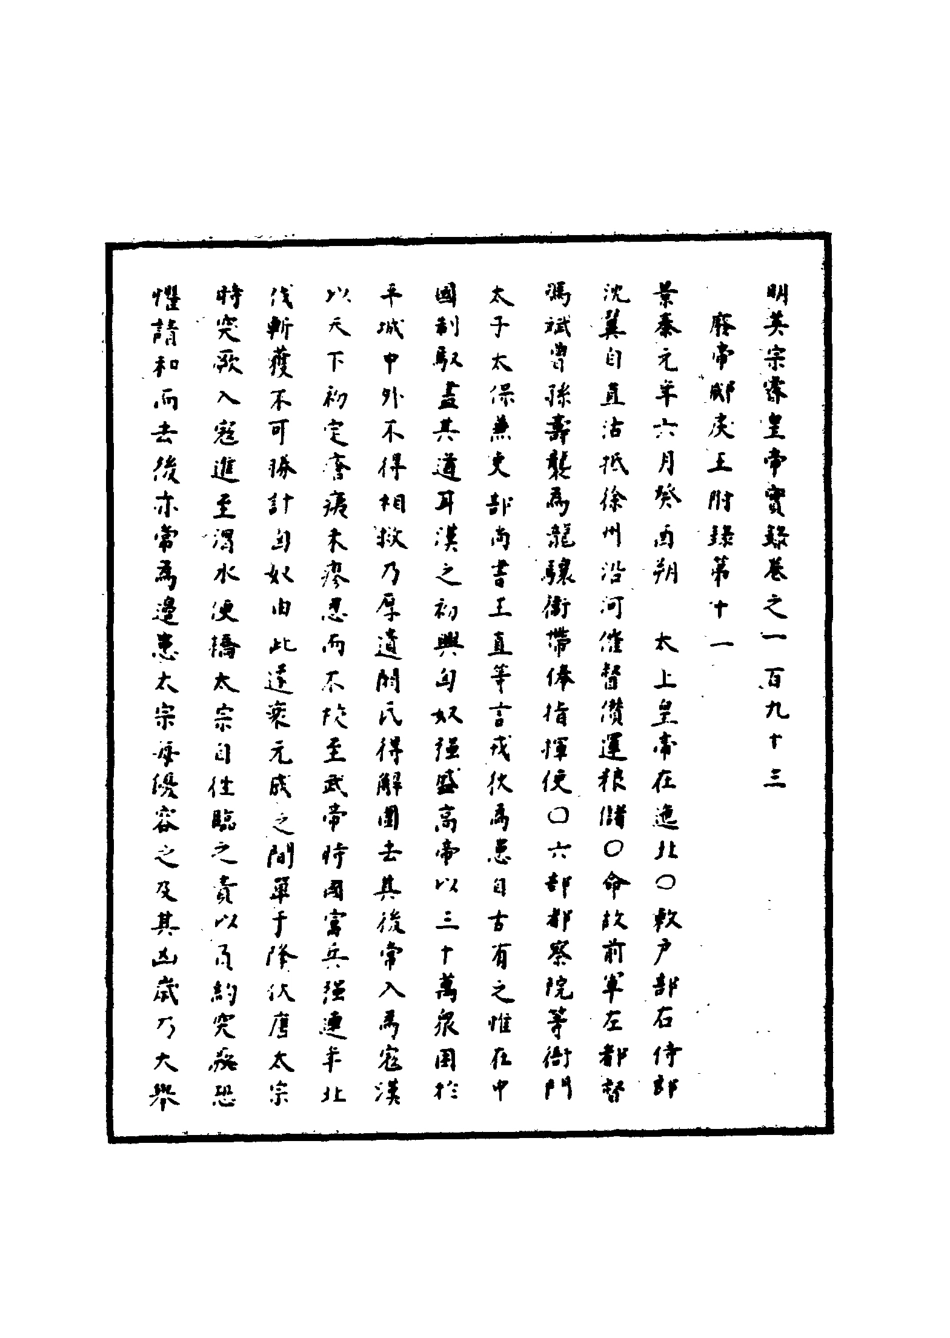 明英宗睿皇帝實錄卷之一百九十三
廢帝郕戾王附錄第十一
景泰元年六月癸酉朔　太上皇帝在迤北○敕戶部右侍郎
沈翼自直沽抵徐州沿河催督儹運粮儲○命故前軍左都督
馮斌曾孫壽襲為龍驤衛帶俸指揮使○六部都察院等衙門
太子太保兼吏部尚書王直等言戎狄為患自古有之惟在中
國制馭盡其道耳漢之初興匈奴强盛高帝以三十萬眾困於
平城中外不得相救乃厚遺閼氏得解圍去其後常入為寇漢
以天下初定瘡痍未瘳忍而不校至武帝時國富兵强連年北
伐斬獲不可勝計匈奴由此遂衰元成之間單于降伏唐太宗
時突厥入寇進至渭水便橋太宗自往臨之責以負約突厥恐
懼請和而去後亦常為邊患太宗每優容之及其凶歲乃大舉